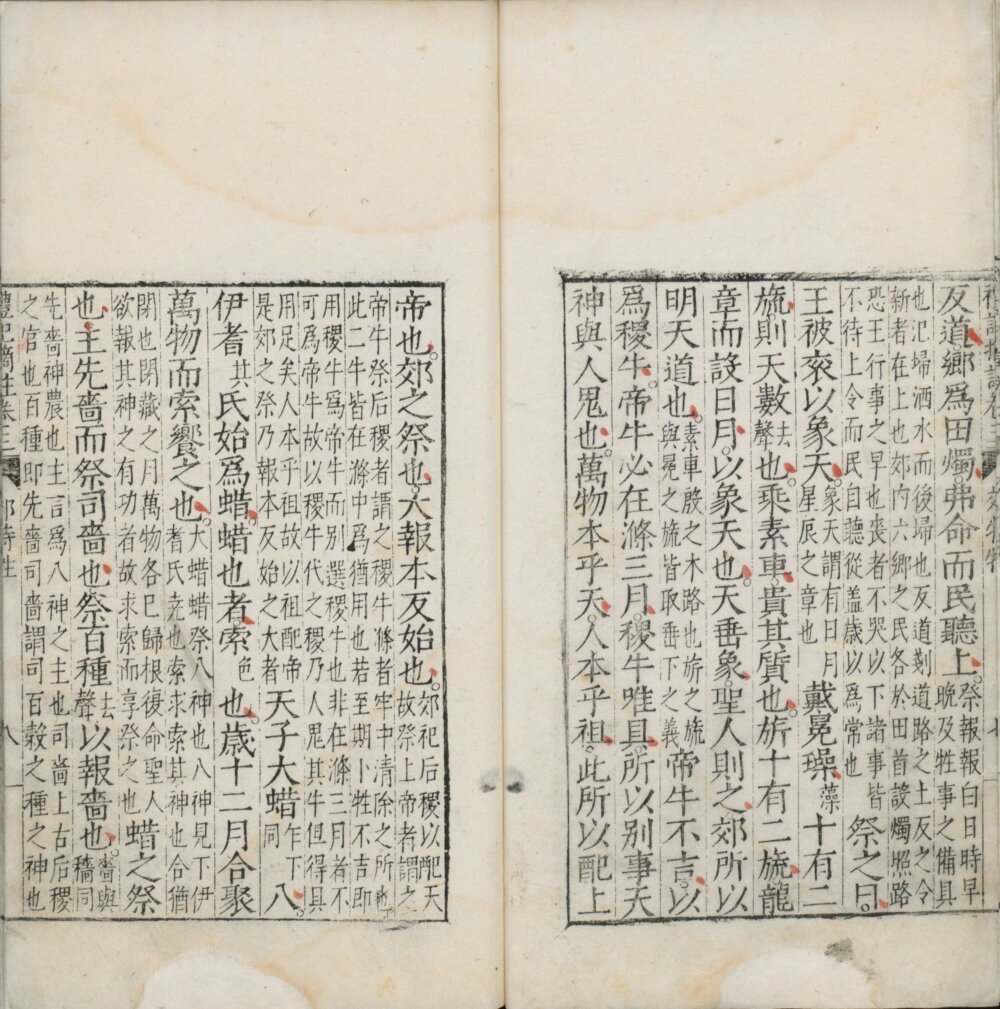 反道鄉爲田燭弗命而民聽上祭報報白日時早
晚及牲事之備具
也氾埽洒水而後埽也反道剗道路之土反之令
新者在上也郊内六鄉之民各於田首設燭照路
恐王行事之早也喪者不哭以下諸事皆
不待上令而民自聽從盖歳以爲常也祭之日
王被衮以象天象天謂有日月
星辰之章也戴冕璪藻十有二
旒則天數去聲也乘素車貴其質也旂十有二旒龍
章而設日月以象天也天垂象聖人則之郊所以
明天道也素車殷之木路也旂之旒
與冕之旒皆取垂下之義帝牛不吉以
爲稷牛帝牛必在滌三月稷牛唯具所以别事天
神與人鬼也萬物本乎天人本乎祖此所以配上
帝也郊之祭也大報本反始也郊祀后稷以配天
故祭上帝者謂之
帝牛祭后稷者謂之稷牛滌者牢中清除之所也
此二牛皆在滌中爲猶用也若至期卜牲不吉即
用稷牛爲帝牛而别選稷牛也非在滌三月者不
可爲帝牛故以稷牛代之稷乃人鬼其牛但得具
用足矣人本乎祖故以祖配帝
是郊之祭乃報本反始之大者天子大蜡乍下同八
伊耆其氏始爲蜡蜡也者索色也歲十二月合聚
萬物而索饗之也大蜡蜡祭八神也八神見下伊
耆氏堯也索求索其神也合猶
閉也閉藏之月萬物各已歸根復命聖人
欲報其神之有功者故求索而享祭之也蜡之祭
也主先嗇而祭司嗇也祭百種去聲以報嗇也嗇與
穡同
先嗇神農也主言爲八神之主也司嗇上古后稷
之官也百種即先嗇司嗇謂司百糓之種之神也
禮記摘註卷三 郊特牲 八